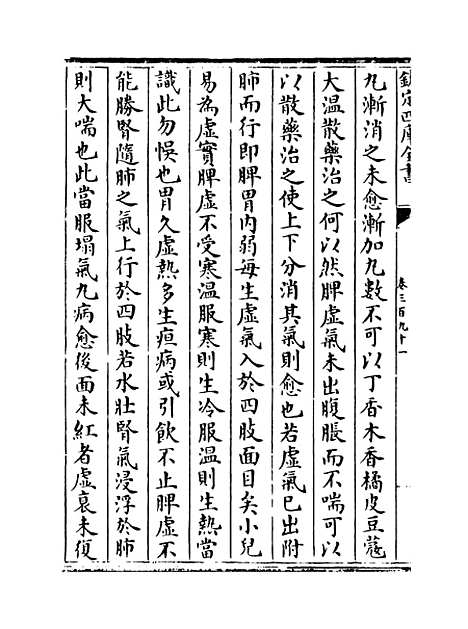 欽定四庫全書
卷三百九十一
丸漸消之未愈漸加丸數不可以丁香木香橘皮豆蔻
大温散藥治之何以然脾虚氣未出腹脹而不喘可以
以散藥治之使上下分消其氣則愈也若虚氣已出附
肺而行即脾胃内弱每生虚氣入於四肢面目矣小兒
易為虚實脾虚不受寒温服寒則生冷服温則生熱當
識此勿悞也胃久虚熱多生疸病或引飲不止脾虚不
能勝腎隨肺之氣上行於四肢若水壯腎氣浸浮於肺
則大喘也此當服塌氣丸病愈後面未紅者虚衰未復